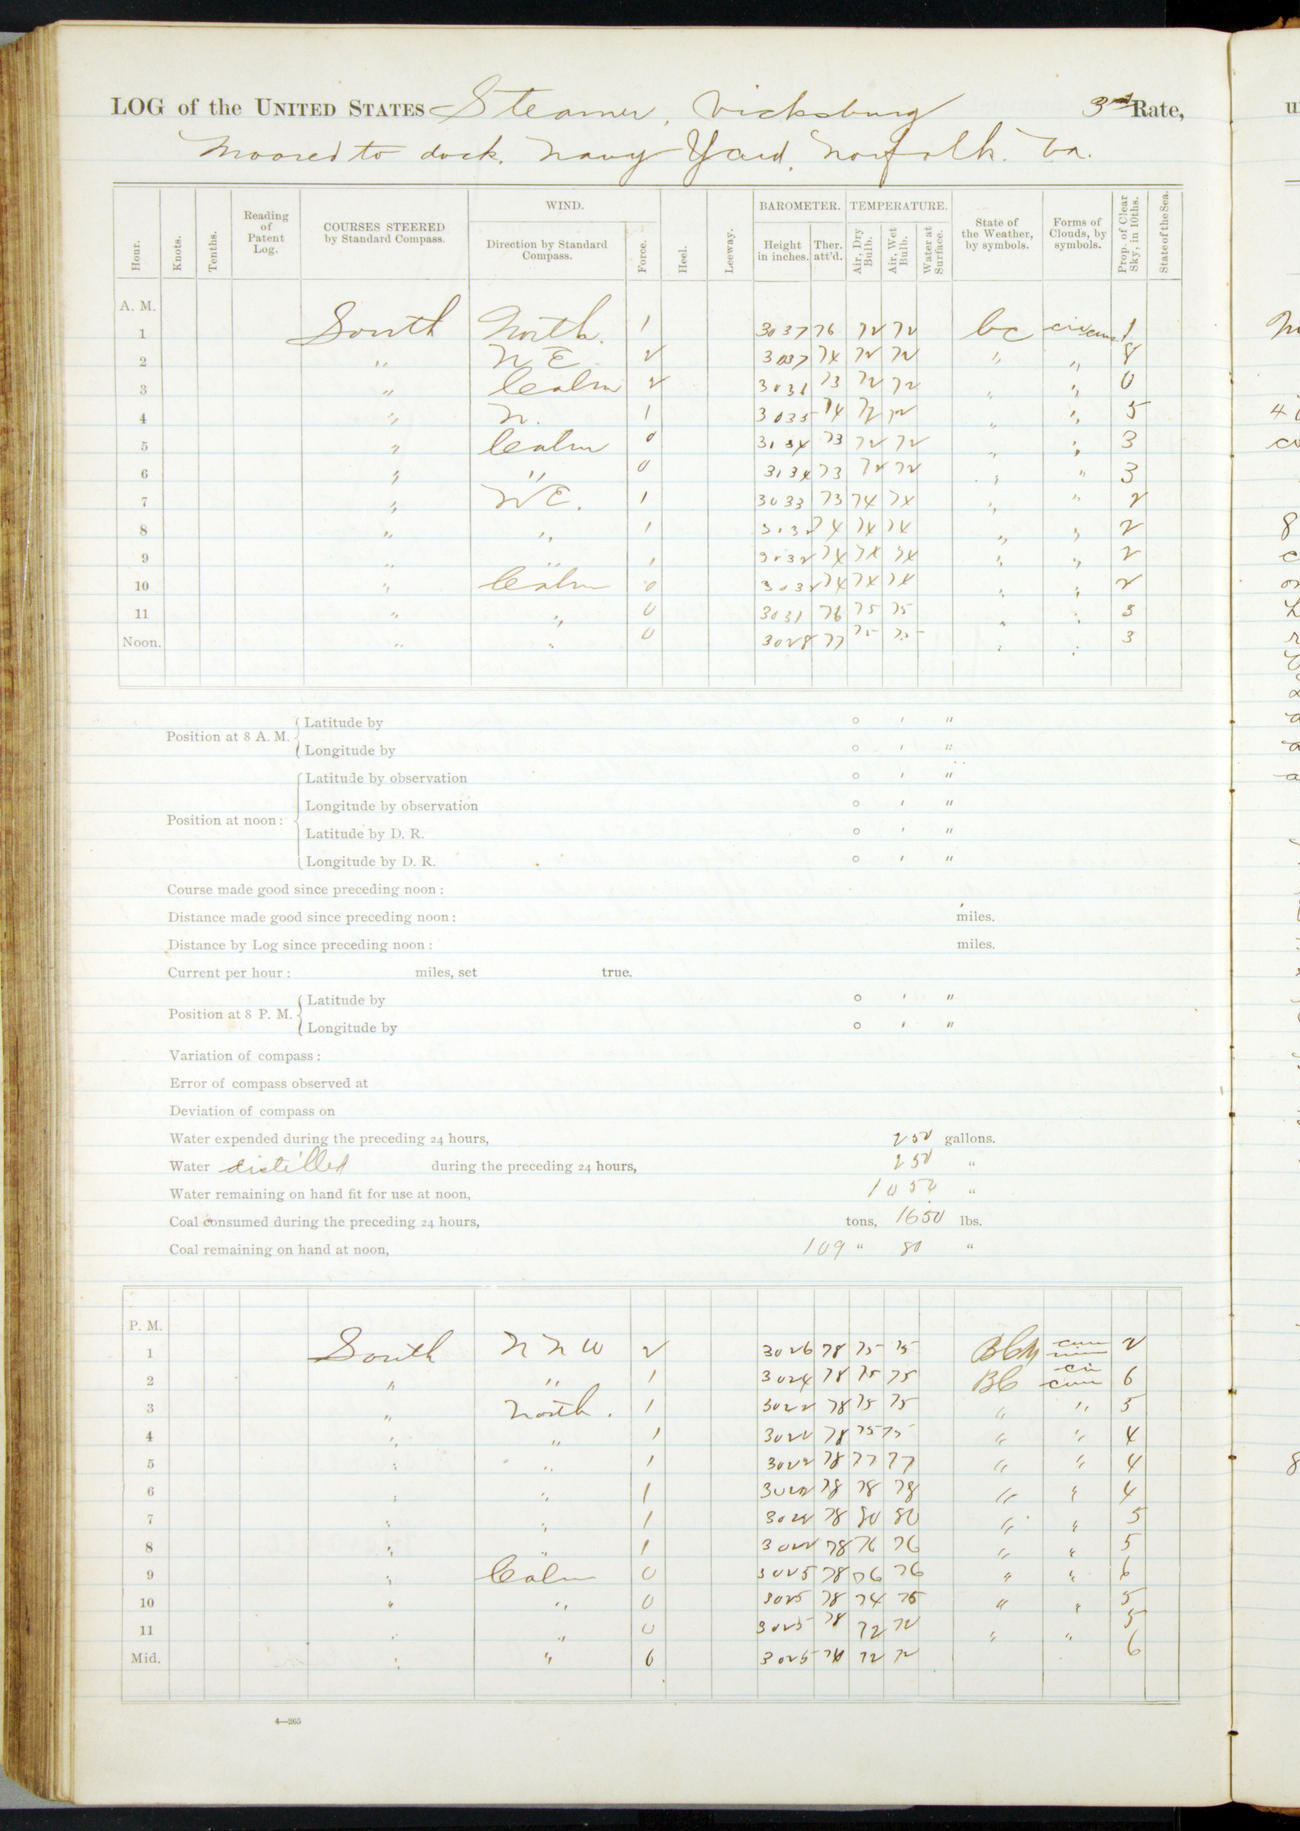 LOG of the UNITED STATES Steamer, Vicksburg 3rd Rate,
Moored to dock, Navy Yard, Norfolk, Va.
Hour. Knots. Tenths. Reading of Patent Log. COURSES STEERED by Standard Compass. WIND. Direction by Standard Compass. Force. Heel. Leeway. BAROMETER. Height in inches. Ther. att'd. TEMPERATURE. Air, Dry Bulb. Air, Wet Bulb. Water at Surface. State of the Weather, by symbols. Forms of Clouds, by symbols. Prop. of Clear Sky, in 10ths. State of the Sea.
A. M.
1 South North. 1 3037 76 72 72 bc cir cum 1
2 " N E 2 3037 74 72 72 " " 8
3 " Calm 2 3031 73 72 72 " " 0
4 " N. 1 3035 74 72 72 " " 5
5 " Calm 0 3134 73 72 72 " " 3
6 " " 0 3134 73 72 72 " " 3
7 " NE. 1 3033 73 74 74 " " 2
8 " " 1 3132 74 74 74 " " 2
9 " " 1 3032 74 74 74 " " 2
10 " Calm 0 3032 74 74 74 " " 2
11 " " 0 3031 76 75 75 " " 3
Noon. " " 0 3028 77 75 75 " " 3
Position at 8 A. M. Latitude by ° ' "
Longitude by ° ' "
Position at noon: Latitude by observation ° ' "
Longitude by observation ° ' "
Latitude by D. R. ° ' "
Longitude by D. R. ° ' "
Course made good since preceding noon:
Distance made good since preceding noon: miles.
Distance by Log since preceding noon: miles.
Current per hour: miles, set true.
Position at 8 P. M. Latitude by ° ' "
Longitude by ° ' "
Variation of compass:
Error of compass observed at
Deviation of compass on
Water expended during the preceding 24 hours, 250 gallons.
Water distilled during the preceding 24 hours, 250 "
Water remaining on hand fit for use at noon, 1050 "
Coal consumed during the preceding 24 hours, tons, 1650 lbs.
Coal remaining on hand at noon, 109 " 80 "
P. M.
1 South N N W 2 3026 78 75 75 cum 2
2 " " 1 3024 78 75 75 BC cir cum 6
3 " North. 1 3022 78 75 75 " " 5
4 " " 1 3022 78 75 75 " " 4
5 " " 1 3022 78 77 77 " " 4
6 " " 1 3022 78 78 78 " " 4
7 " " 1 3022 78 80 80 " " 5
8 " " 1 3022 78 76 76 " " 5
9 " Calm 0 3025 78 76 76 " " 6
10 " " 0 3025 78 74 75 " " 5
11 " " 0 3025 78 72 72 " " 5
Mid. " " 0 3025 72 72 6
4—265